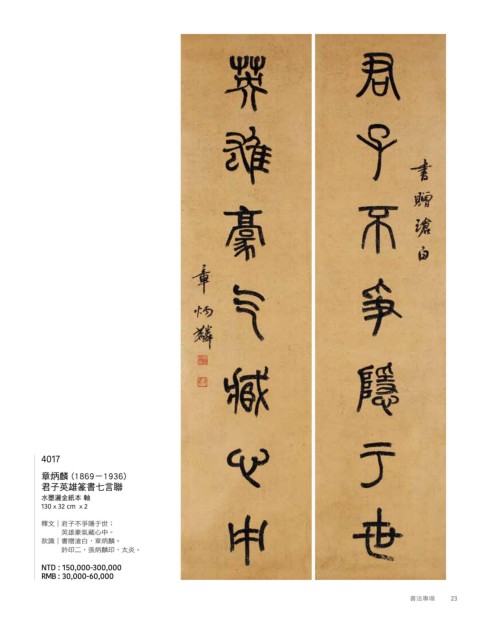 君子不爭隱于世
書贈滄白
英雄豪气臧心中
章炳麟
4017
章炳麟 (1869－1936)
君子英雄篆書七言聯
水墨灑金紙本 軸
130 x 32 cm x 2
釋文｜君子不爭隱于世；
英雄豪氣藏心中。
款識｜書贈滄白，章炳麟。
於印二，張炳麟印，太炎。
NTD : 150,000-300,000
RMB : 30,000-60,000
書法專場 23